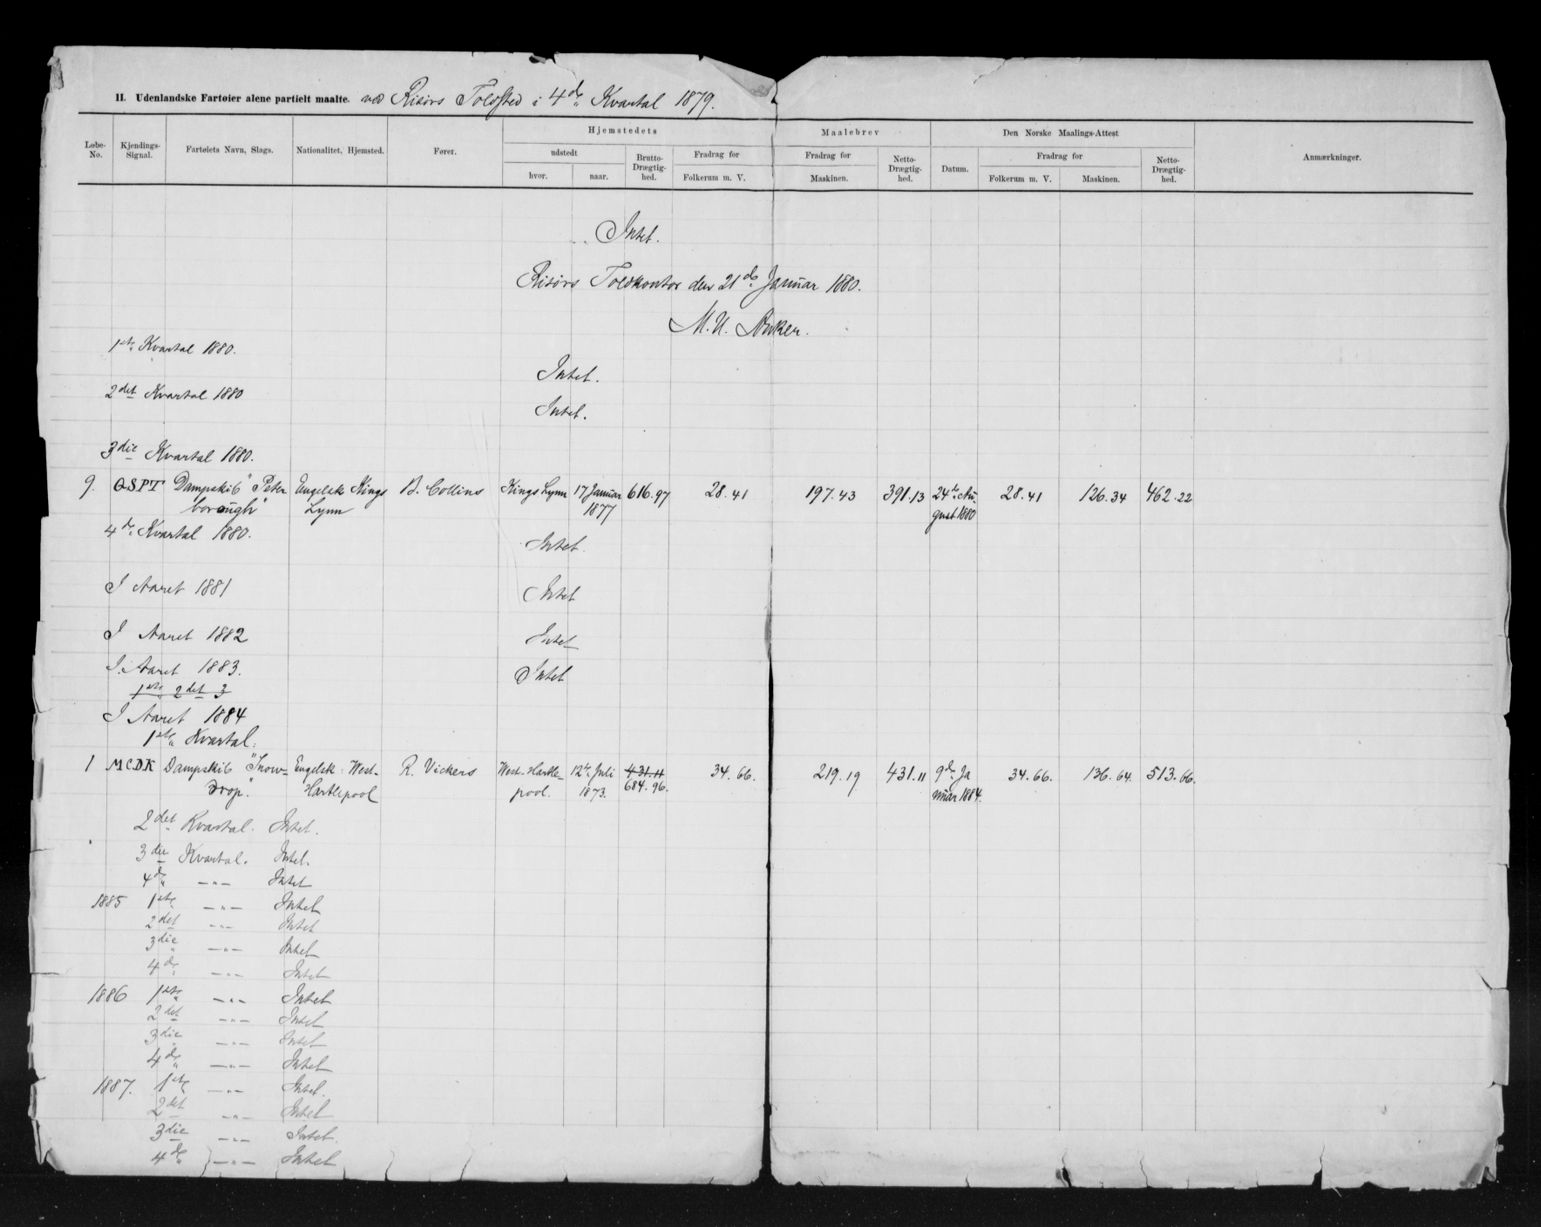 II. Udenlandske Fartøier alene partielt maalte. ved Risørs Toldsted i 4de Kvartal 1879.
Hjemstedets Maalebrev Den Norske Maalings-Attest
Løbe-No. Kjendings-Signal. Fartøiets Navn, Slags. Nationalitet, Hjemsted. Fører. udstedt hvor. naar. Brutto-Drægtig-hed. Fradrag for Folkerum m. V. Fradrag for Maskinen. Netto-Drægtig-hed. Datum. Fradrag for Folkerum m. V. Maskinen. Netto-Drægtig-hed. Anmærkninger.
Intet.
Risørs Toldkontor den 21de Januar 1880.
M. U.
1ste Kvartal 1880.
Intet.
2det Kvartal 1880
Intet.
3die Kvartal 1880.
9. QSPT Dampskib "Peter Engelsk Kings B. Collins Kings Lynn 17 Januar 616.97 28.41 197.43 391.13 24de Au- 28.41 126.34 462.22
borough" Lynn 1877 gust 1880
4de Kvartal 1880.
Intet.
I Aaret 1881 Intet
I Aaret 1882 Intet
I Aaret 1883. Intet
1ste 2det 3
I Aaret 1884
1ste Kvartal.
1 MCDK Dampskib "Snow- Engelsk West- R. Vickers West-Hartle- 12te Juli 431.11 34.66. 219.19 431.11 9de Ja 34.66. 136.64. 513.66.
drop." Hartlepool pool. 1873. 684.96. nuar 1884.
2det Kvartal. Intet.
3die Kvartal. Intet.
4de —"— Intet
1885 1ste —"— Intet
2det —"— Intet
3die —"— Intet
4de —"— Intet
1886 1ste —"— Intet
2det —"— Intet
3die —"— Intet
4de —"— Intet
1887. 1ste —"— Intet.
2det —"— Intet
3die —"— Intet.
4de —"— Intet